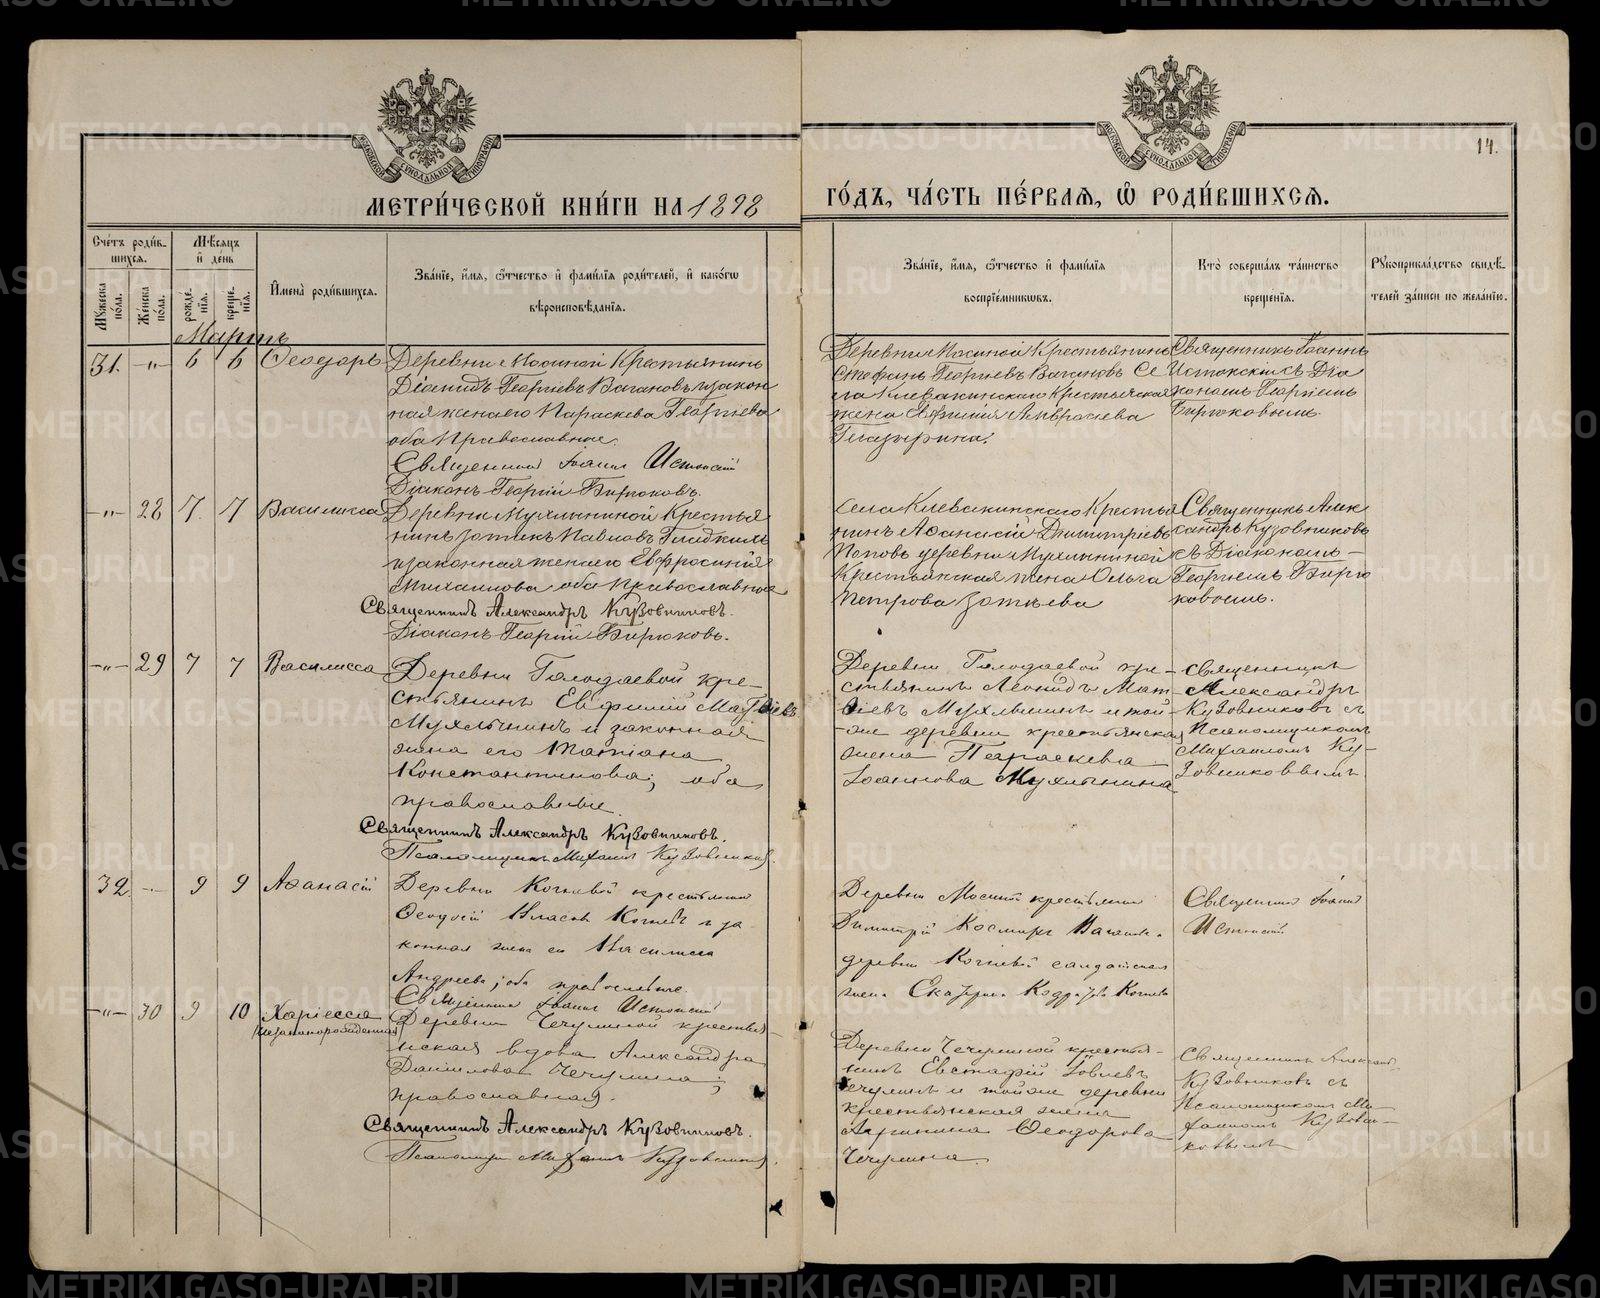 14.
МЕТРИ́ЧЕСКОЙ КНИ́ГИ НА 1898
ГО́ДЪ, ЧА́СТЬ ПЕ́РВАЯ, Ѿ РОДИ́ВШИХСЯ.
Сче́тъ роди́в-
шихся.
Мѣ́сяцъ
и де́нь
Мꙋ́жеска по́ла.
Же́нска по́ла.
рожде́-
нія.
креще-
нія.
И҆мена̀ роди́вшихся.
Зва́ніе, и҆́мя, ѻ҆́тчество и҆ фами́лія роди́телей, и҆ како́гѡ
вѣроисповѣ́данія.
Зва́ніе, и҆́мя, ѻ҆́тчество и҆ фами́лія
воспріе́мникѡвъ.
Кто̀ соверша́лъ та́инство
креще́нія.
Рꙋкоприкла́дство свидѣ́-
телей за́писи по жела́нію.
Мартъ
31. -„- 6 6 Ѳеодоръ
Деревни Мосиной Крестьянинъ
Діамидъ Георгіевъ Вагановъ и закон
ная жена его Параскева Георгіева
оба Православные.
Священникъ Іоаннъ Истокскій
Діаконъ Георгій Бирюковъ.
Деревни Мосиной Крестьянинъ
Стефанъ Георгіевъ Вагановъ Се
ла Клевакинскаго Крестьянская
жена Евфимія Амвросіева
Священникъ Іоаннъ
Истокскій съ Діа
кономъ Георгіемъ
Бирюковымъ.
-„- 28 7. 7 Василисса
Деревни Мухлыниной Крестья
нинъ Зотикъ Павловъ Гладкихъ
и законная жена его Евфросинія
Михаилова оба православные
Священникъ Александръ Кузовниковъ.
Діаконъ Георгій Бирюковъ.
Села Клевакинскаго Крестья
нинъ Аѳанасій Димитріевъ
Поповъ деревни Мухлыниной
Крестьянская жена Ольга
Петрова Зотѣева
Священникъ Алек
сандръ Кузовниковъ
съ Діакономъ
Георгіемъ Бирю
ковымъ.
-„- 29 7 7 Василисса
Деревни Голодаевой кре-
стьянинъ Евфимій Матѳіевъ
Мухлынинъ и законная
жена его Татіана
Константинова; оба
православные.
Священникъ Александръ Кузовниковъ.
Псаломщикъ Михаилъ Кузовниковъ.
Деревни Голодаевой кре-
стьянинъ Леонидъ Мат-
ѳіевъ Мухлынинъ и той-
-же деревни крестьянская
жена Параскева
Іоаннова Мухлынина
Священникъ
Александръ
Кузовниковъ съ
Псаломщикомъ
Михаиломъ Ку-
зовниковымъ
32. -„- 9 9 Аѳанасій
Деревни Когневой крестьянинъ
Ѳеодосій Власовъ Когневъ и за
конная жена его Василисса
Андреева; оба православные.
Священникъ Іоаннъ Истокскій
Деревни Мосиной крестьянинъ
Димитрій Косминъ Вагановъ.
деревни Когневой солдатская
жена Екатерина Когнева
Священникъ Іоаннъ
Истокскій
-„- 30 9 10 Харіесса
(незаконорожденная)
Деревни Чечулиной крестья-
нская вдова Александра
Даниловна Чечулина;
православная.
Священникъ Александръ Кузовниковъ.
Псаломщикъ Михаилъ Кузовниковъ.
Деревни Чечулиной крестья-
нинъ Евстафій Іовлевъ
Чечулинъ и тойже деревни
крестьянская жена
Ѳеодорова
Чечулина.
Священникъ Александръ
Кузовниковъ съ
Псаломщикомъ Ми-
хаиломъ Кузовни-
ковымъ
METRIKI.GASO-URAL.RU